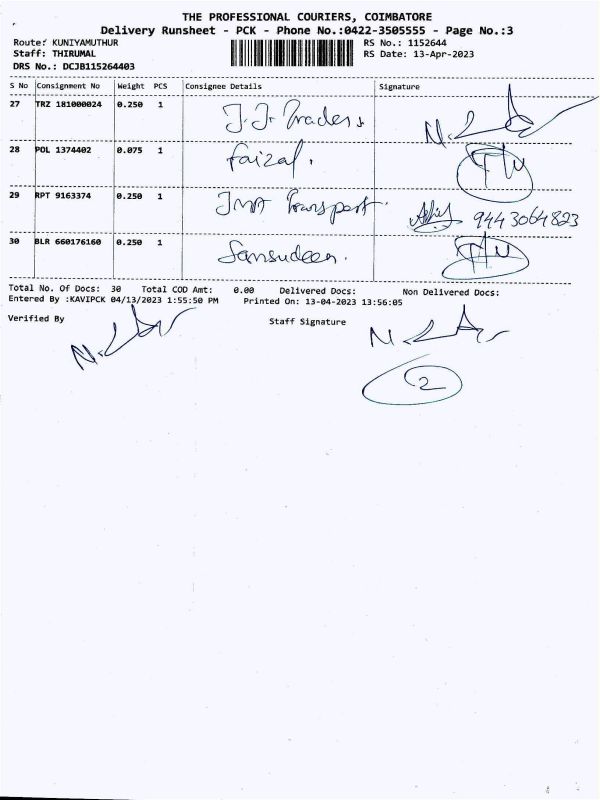 THE PROFESSIONAL COURIERS, COIMBATORE
Delivery Runsheet - PCK - Phone No.:0422-3505555 - Page No.:3
Route: KUNIYAMUTHUR RS No.: 1152644
Staff: THIRUMAL RS Date: 13-Apr-2023
DRS No.: DCJB115264403
S No Consignment No Weight PCS Consignee Details Signature
27 TRZ 181000024 0.250 1 J.J. Traders
28 POL 1374402 0.075 1 faizal.
29 RPT 9163374 0.250 1 Transport 9443064823
30 BLR 660176160 0.250 1 Sansudeen.
Total No. Of Docs: 30 Total COD Amt: 0.00 Delivered Docs: Non Delivered Docs:
Entered By :KAVIPCK 04/13/2023 1:55:50 PM Printed On: 13-04-2023 13:56:05
Verified By Staff Signature
2